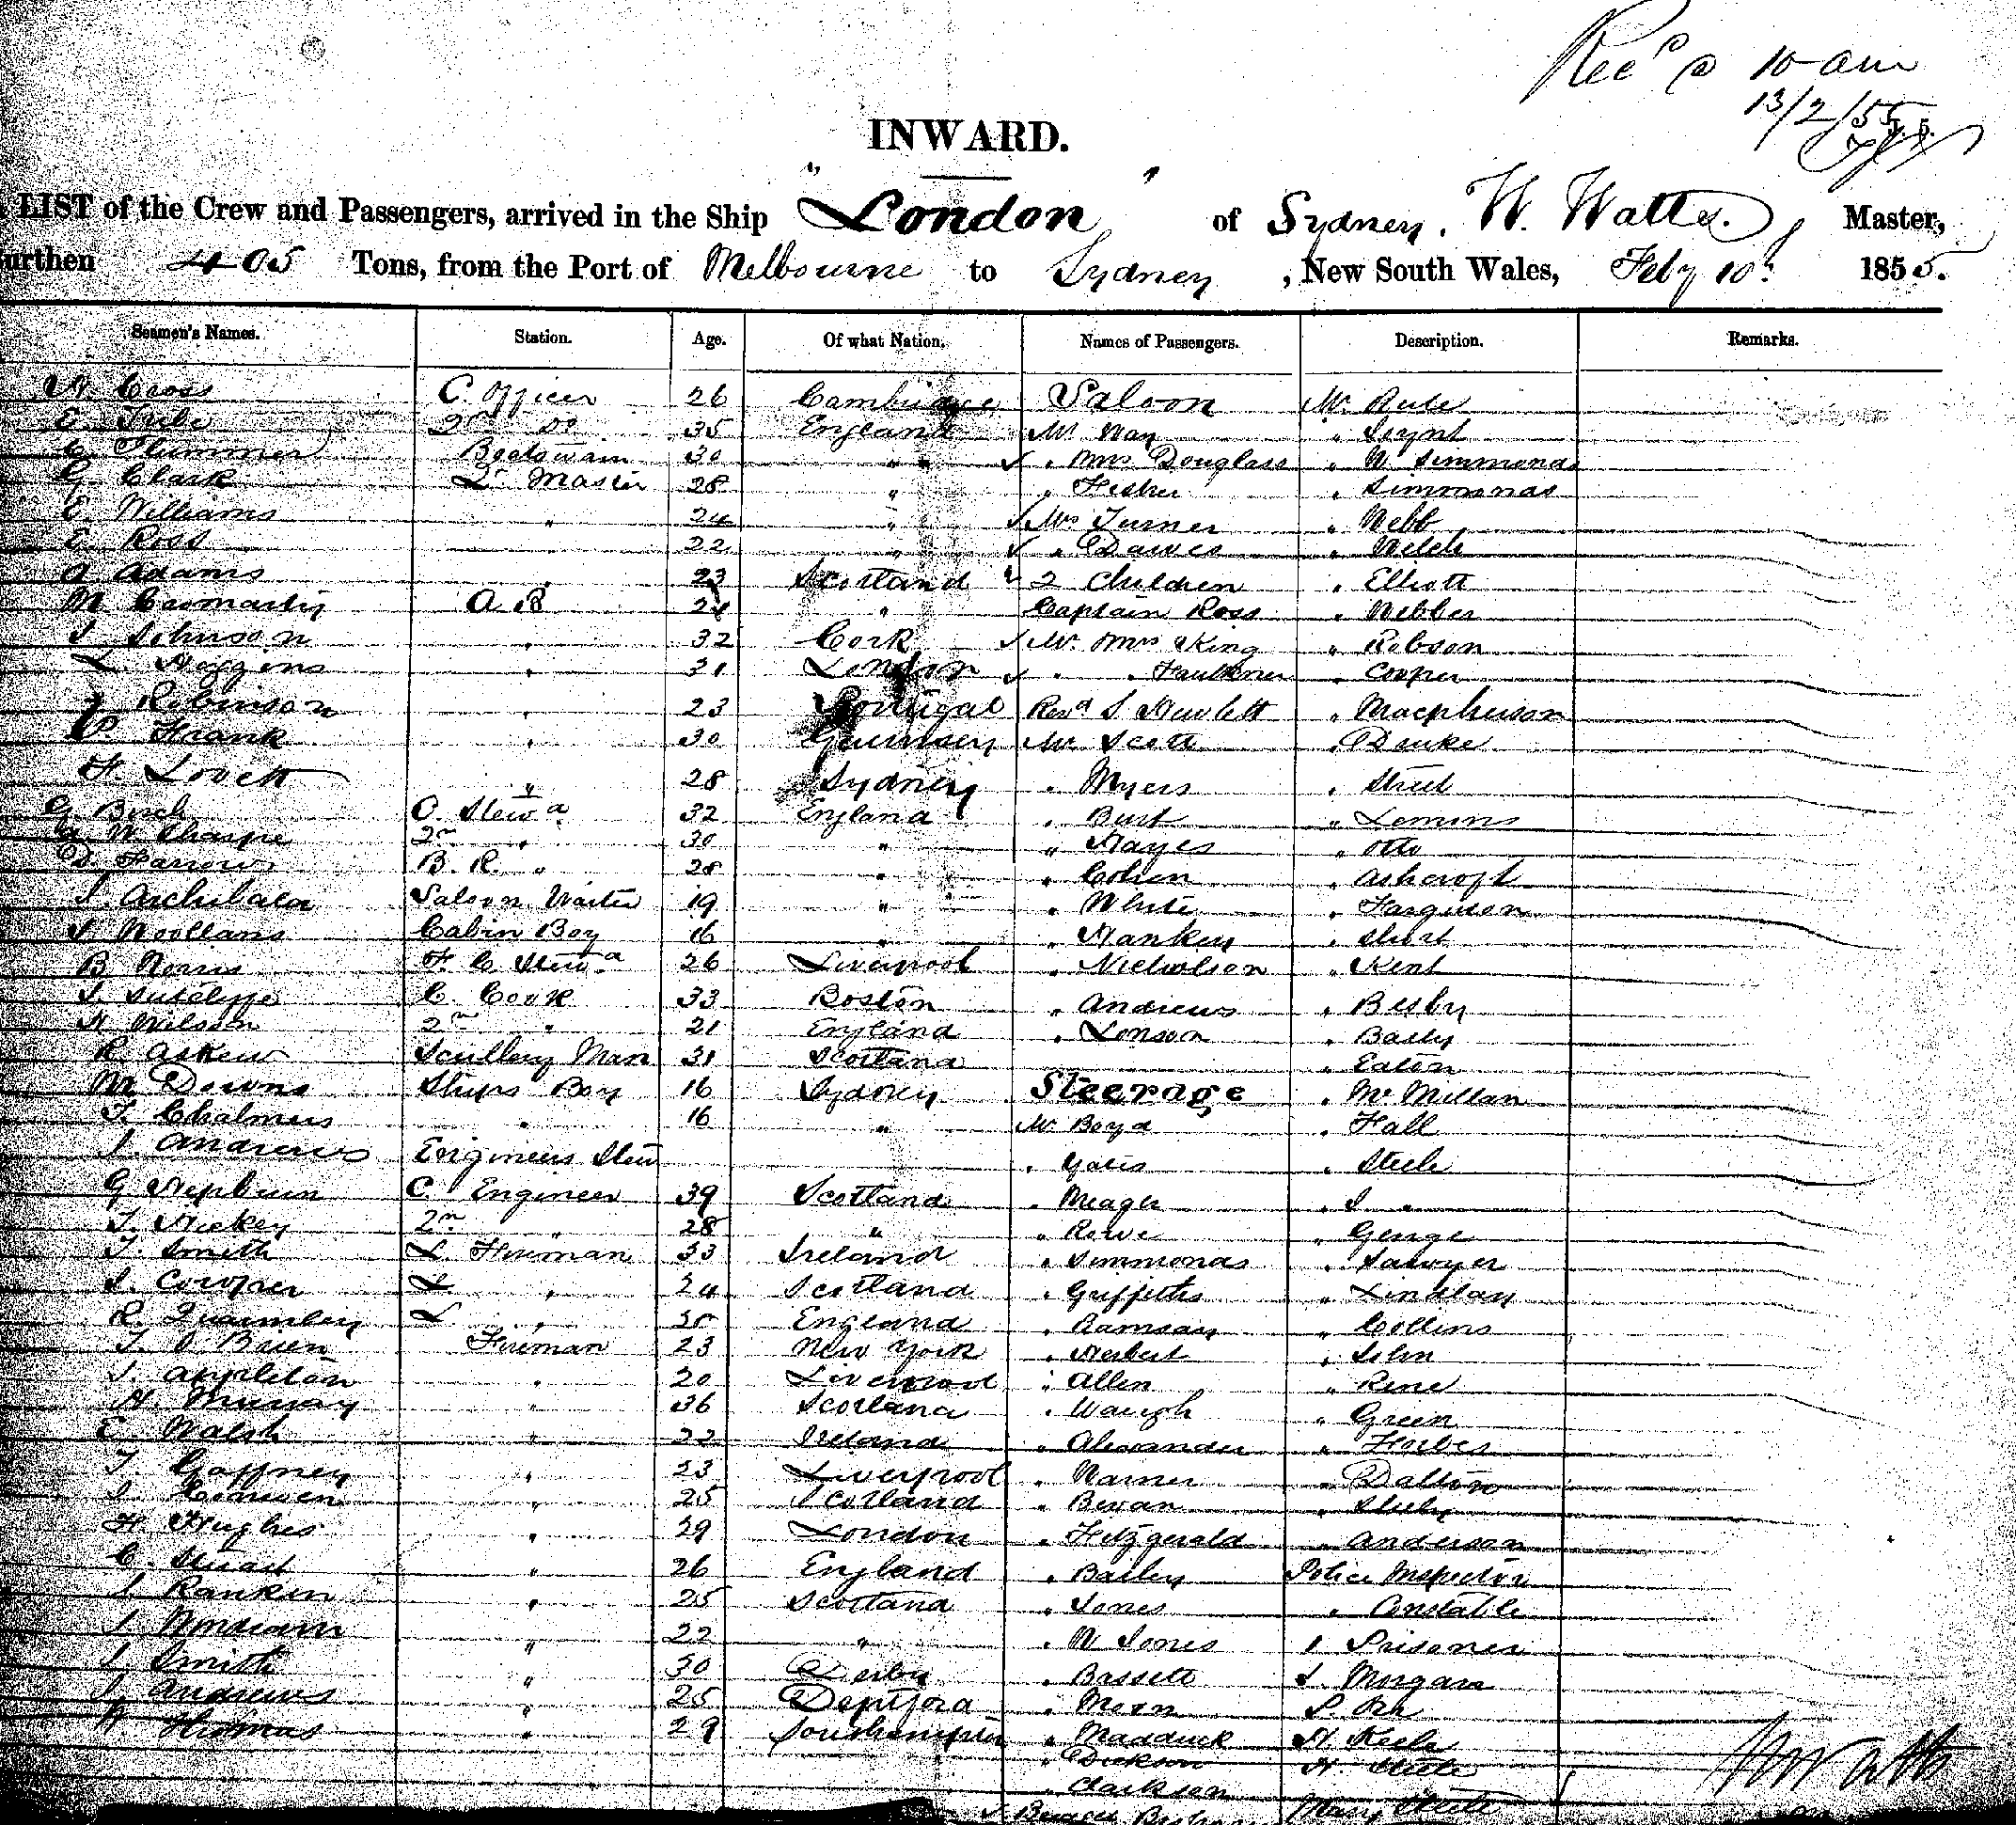 Recd @ 10 am
13/2/55
INWARD.
LIST of the Crew and Passengers, arrived in the Ship "London" of Sydney, W. Watts, Master,
urthen 405 Tons, from the Port of Melbourne to Sydney, New South Wales, Feby 10th 1855.
Seamen's Names. Station. Age. Of what Nation. Names of Passengers. Description. Remarks.
Cross C. Officer 26 Cambridge Saloon Mr
E 2nd Do 35 England Mr Way "
Plummer Boatswain 30 " " " Mrs Douglass " W Simmonds
G Clark Qr Master 28 " " Fisher " Simmonds
E Williams " 24 " Mrs Turner " Webb
E Ross 22 " " Dawes " Welch
A Adams " 23 Scotland 2 Children " Elliott
M A.B 24 " Captain Ross " Webber
J Johnson " 32 Cork Mr. Mrs King " Robson
L Higgins " 31 London " " Faulkner " Cooper
J Robinson " 23 Portugal Revd J Hewlett " Macpherson
P Frank " 30 Guernsey Mr Scott " Druke
F. Lovett " 28 Sydney " Myers " Street
G. Birch C. Stewd 32 England " Burt " Lemins
W Sharpe 2nd " 30 " " Hayes " Otto
D. Farrow B. R. " 28 " " Cohen " Ashcroft
J. Archibald Saloon Waiter 19 " " White " Farguson
J Woollans Cabin Boy 16 " " Hankey " Short
B Norris F. C Stewd 26 Liverpool " Nicholson " Kent
J. Sutcliffe C. Cook 33 Boston " Andrews " Besby
H Wilson 2nd " 21 England " Lonson " Baily
R Askew Scullery Man 31 Scotland " Eaton
M Downs Ships Boy 16 Sydney Steerage " Mc Millan
T. Chalmers " 16 " Mr Boyd " Hall
J. Andrews Engineers Stew " Yates " Steele
G Hepburn C. Engineer 39 Scotland " Meager " J "
T. Hickey 2nd " 28 " " Rowe " George
T. Smith L Fireman 33 Ireland " Simmonds " Sawyer
J. Cowper L " 24 Scotland " Griffiths " Lindsay
R. Quarmley L " 30 England " Ramsay " Collins
T. O Brien Fireman 23 New York " Herbert " John
J. Appleton " 20 Liverpool " Allen " Rene
H. Murray " 36 Scotland " Waugh " Green
E Walsh " 22 Ireland " Alexander " Forbes
T. Gaffney " 23 Liverpool " Warner " Dalton
J. " 25 Scotland " Bevan "
H. Hughes " 29 London " Fitzgerald " Anderson
C. Stuart " 26 England " Bailey Police Inspector
J Rankin " 25 Scotland " Jones " Constable
J " 22 " " W Jones 1 Prisoner
J Smith " 30 Derby " Bassett J. Morgan
J. Andrews " 25 Deptford " Moon
Thomas " 29 Southampton " Madduck H Keele
" Dickson H Steele
" Clarkson " "
Mary Steele
W Watts